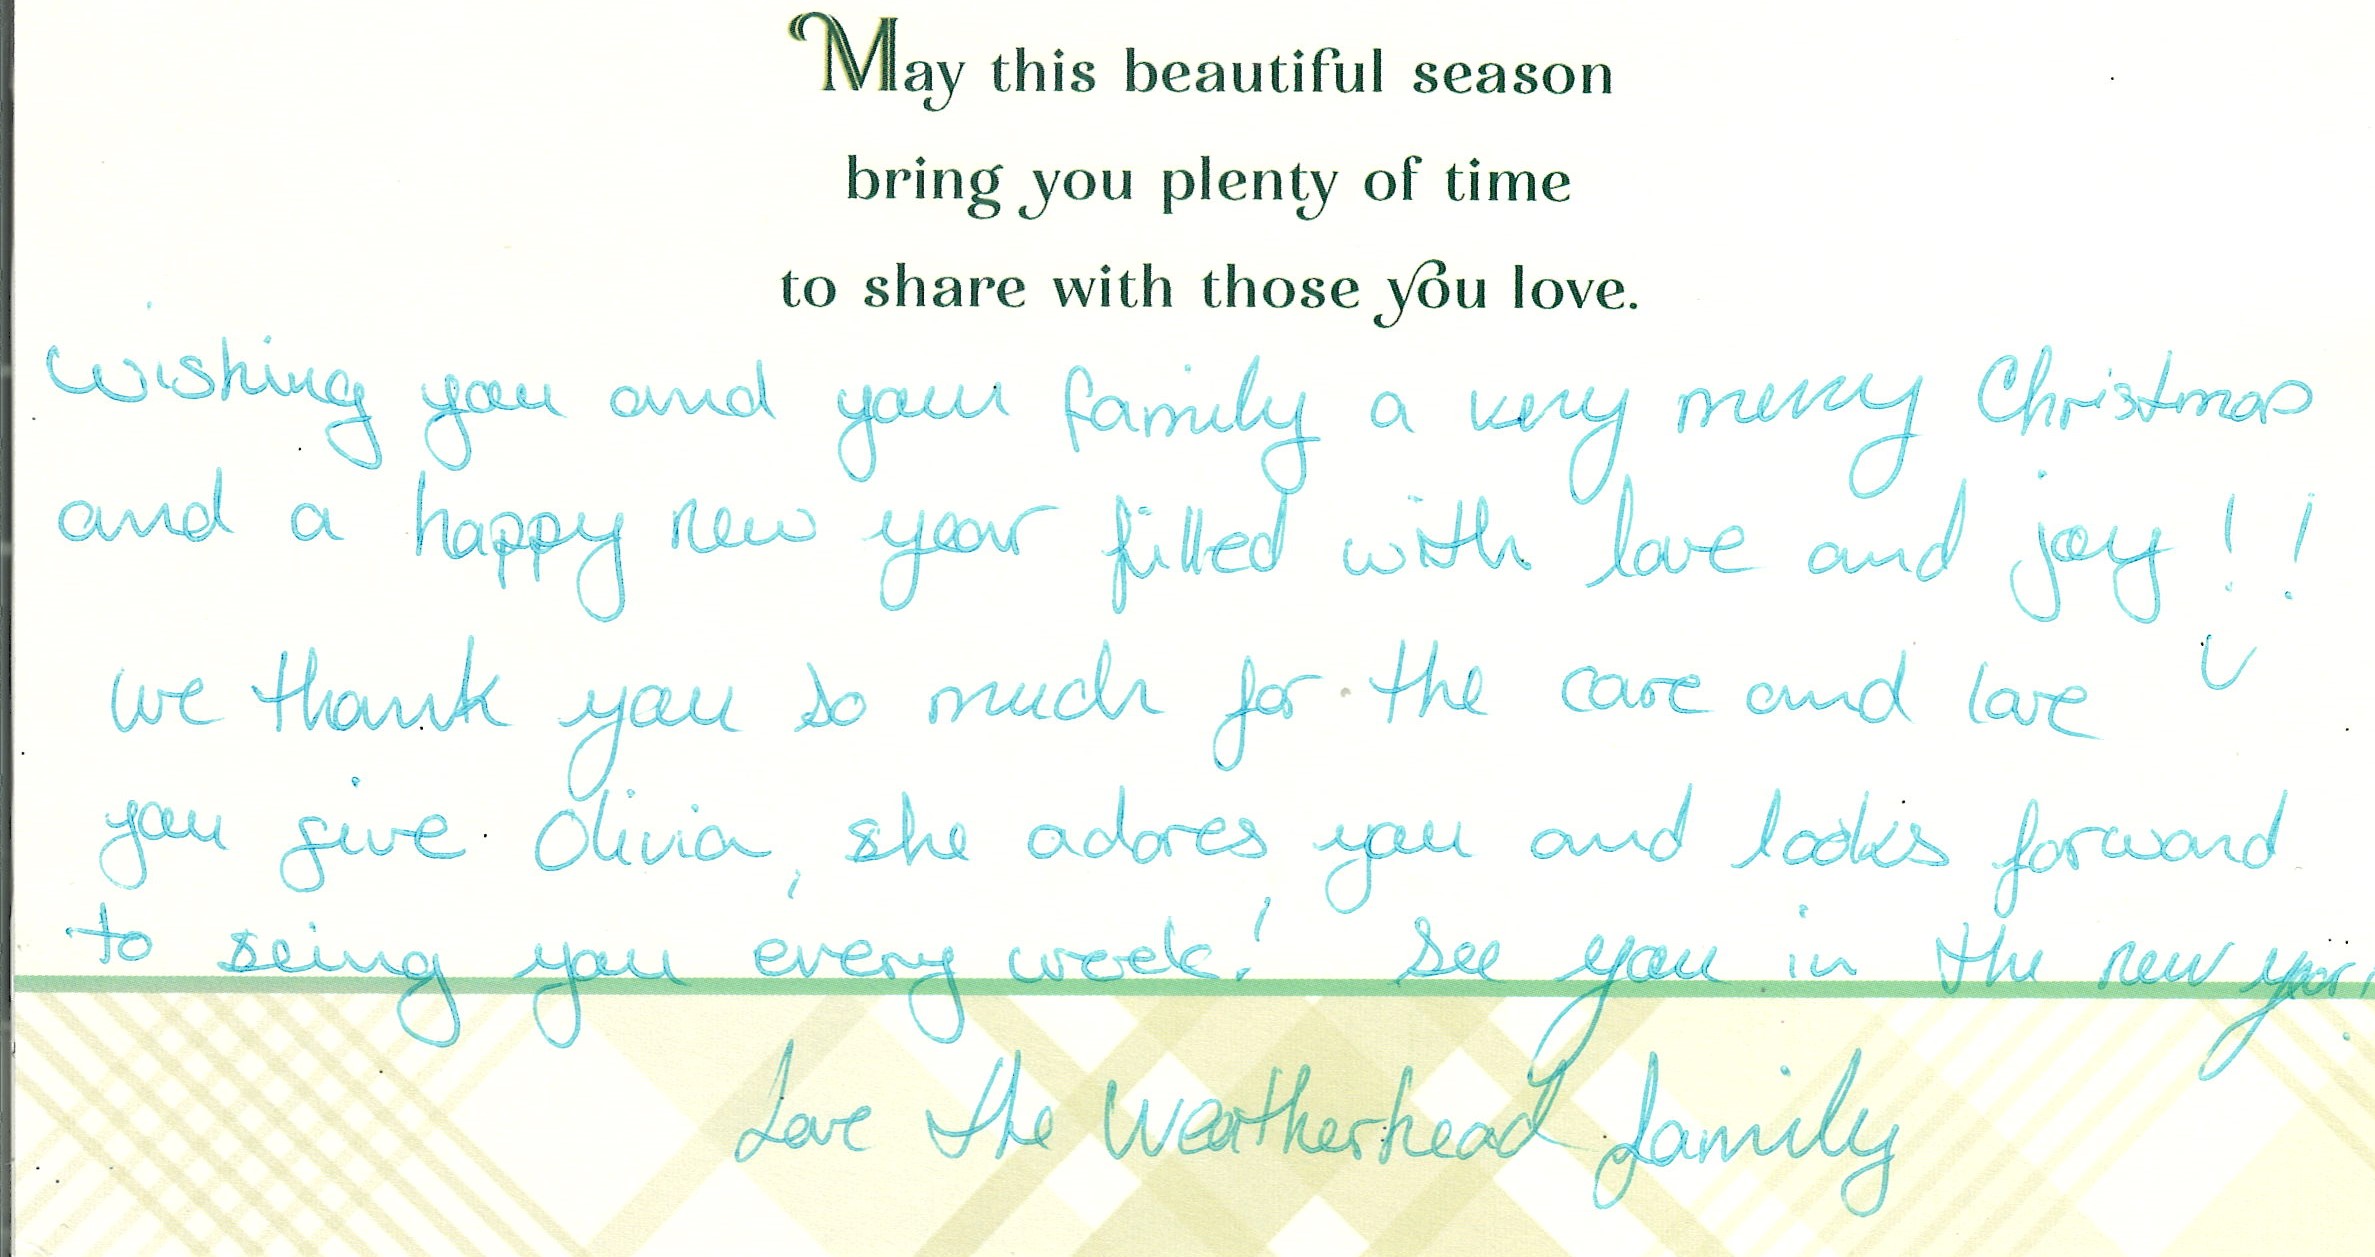 May this beautiful season
bring you plenty of time
to share with those you love.
Wishing you and your family a very merry Christmas
and a happy new year filled with love and joy!!
We thank you so much for the care and love
you give Olivia, she adores you and looks forward
to seing you every week! See you in the new year!
Love the Weatherhead family